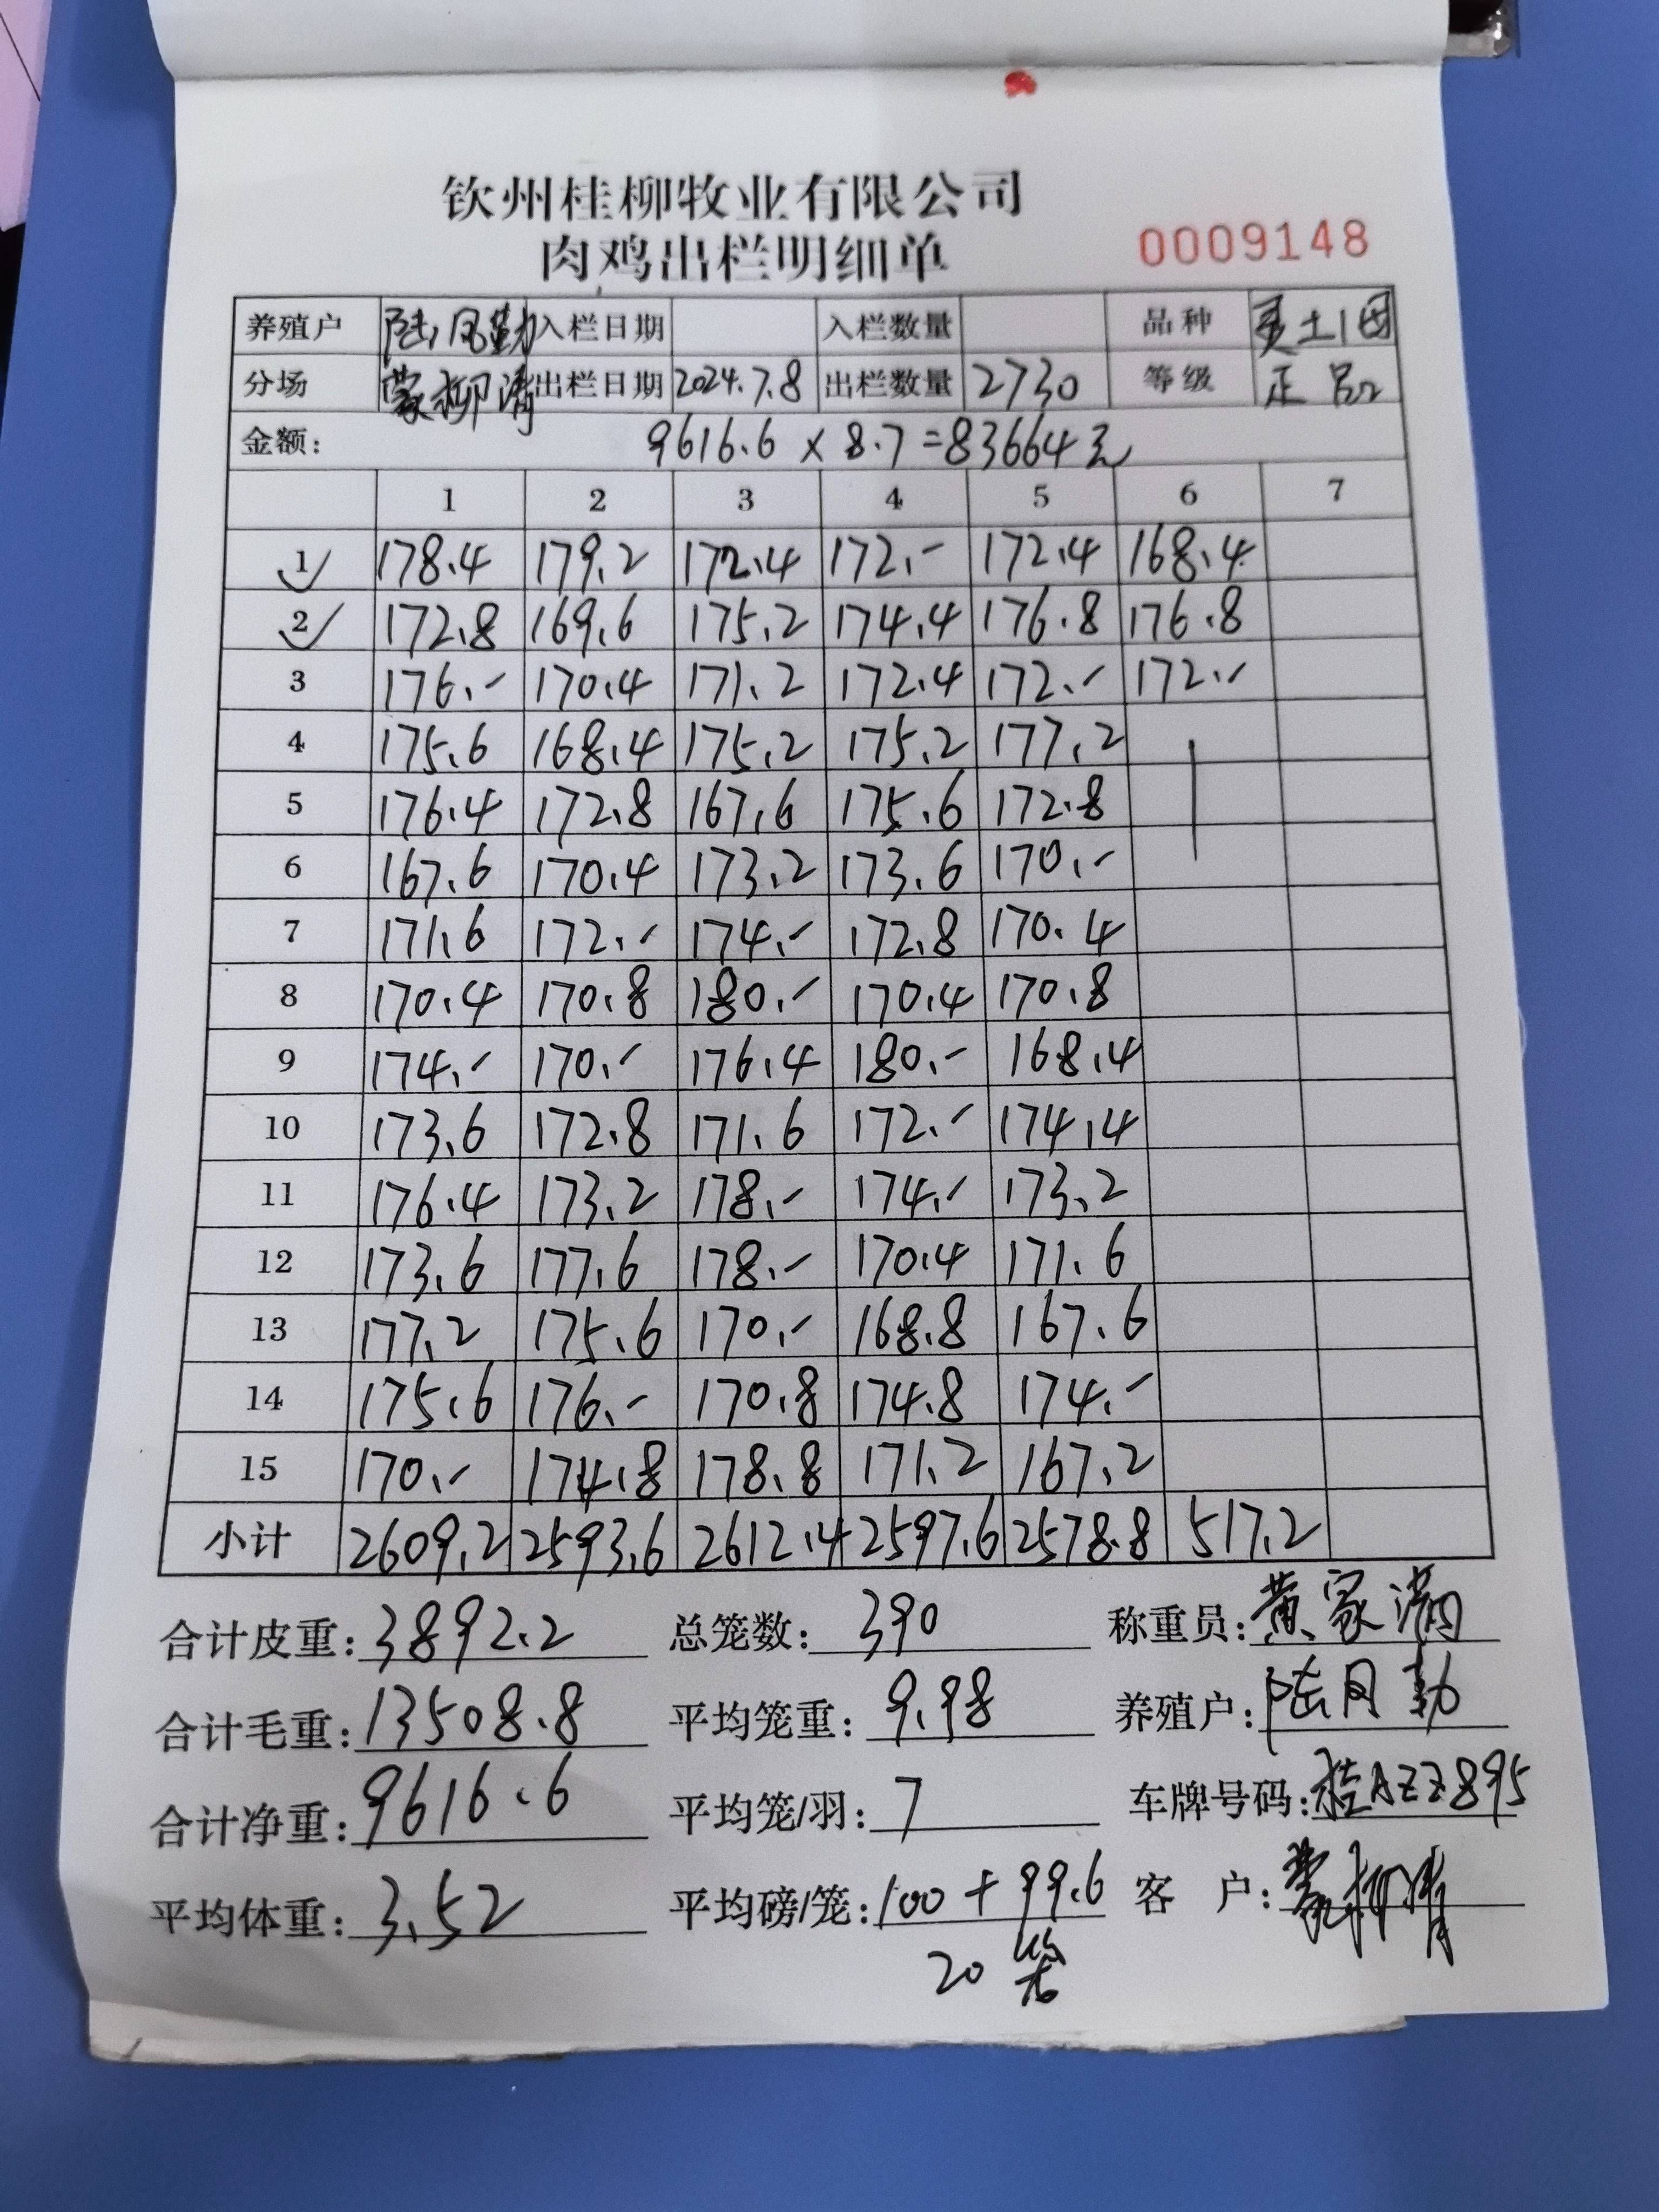 钦州桂柳牧业有限公司
肉鸡出栏明细单 0009148
养殖户 陆凤勤 入栏日期 入栏数量 品种 灵土1母
分场 蒙柳清 出栏日期 2024.7.8 出栏数量 2730 等级 正品
金额: 9616.6 × 8.7 = 83664元
1 2 3 4 5 6 7
1 178.4 179.2 172.4 172.- 172.4 168.4
2 172.8 169.6 175.2 174.4 176.8 176.8
3 176.- 170.4 171.2 172.4 172.- 172.-
4 175.6 168.4 175.2 175.2 177.2
5 176.4 172.8 167.6 175.6 172.8
6 167.6 170.4 173.2 173.6 170.-
7 171.6 172.- 174.- 172.8 170.4
8 170.4 170.8 180.- 170.4 170.8
9 174.- 170.- 176.4 180.- 168.4
10 173.6 172.8 171.6 172.- 174.4
11 176.4 173.2 178.- 174.- 173.2
12 173.6 177.6 178.- 170.4 171.6
13 177.2 175.6 170.- 168.8 167.6
14 175.6 176.- 170.8 174.8 174.-
15 170.- 174.8 178.8 171.2 167.2
小计 2609.2 2593.6 2612.4 2597.6 2578.8 517.2
合计皮重: 3892.2 总笼数: 390 称重员: 黄家满
合计毛重: 13508.8 平均笼重: 9.98 养殖户: 陆月勤
合计净重: 9616.6 平均笼/羽: 7 车牌号码: 桂AZZ895
平均体重: 3.52 平均磅/笼: 100 + 99.6 客 户: 蒙柳清
20笼